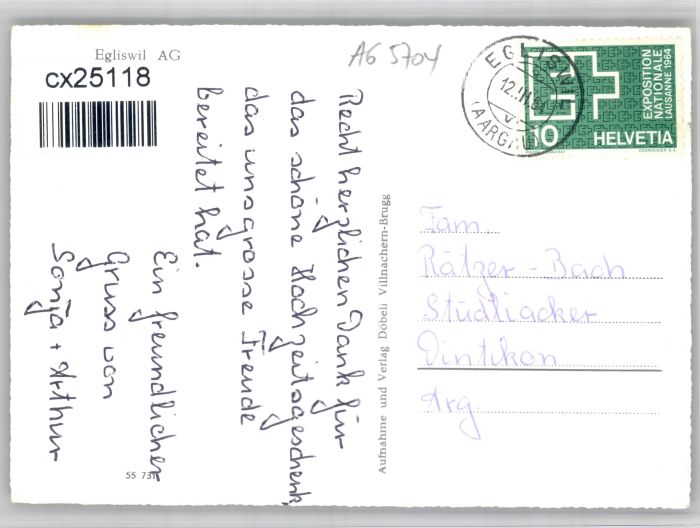 Egliswil AG
cx25118
AG 5704
EGLISWIL
12.III.64
(AARGAU)
EXPOSITION
NATIONALE
LAUSANNE 1964
10 HELVETIA
Recht herzlichen Dank für
das schöne Hochzeitsgeschenk,
das uns grosse Freude
bereitet hat.
Ein freundlicher
Gruss von
Sonja + Arthur
Aufnahme und Verlag Döbeli Villnachern-Brugg
Fam.
Rätzer-Bach
Stüdliacker
Dintikon
Arg.
55 73